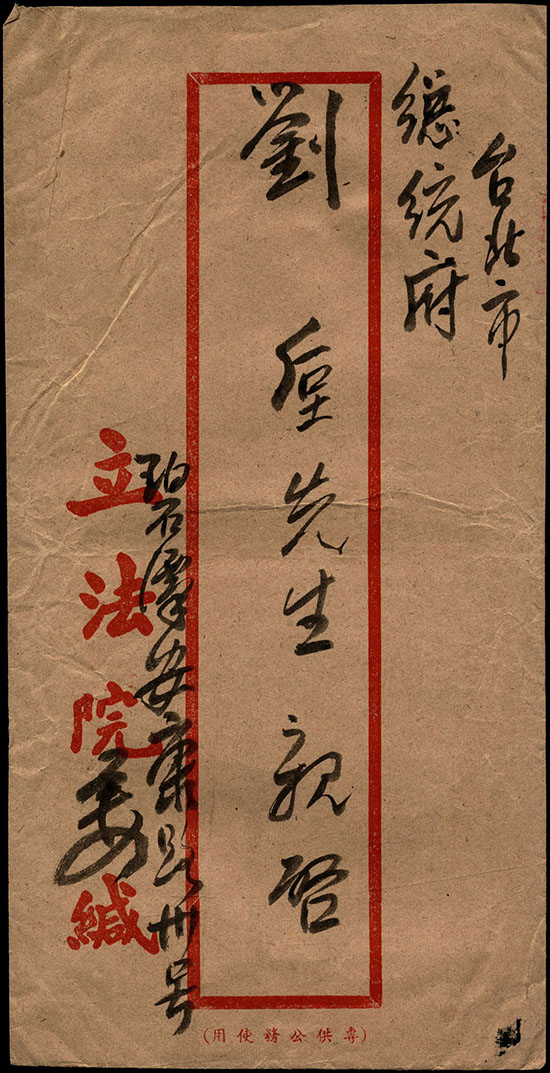 台北市
總統府
劉垕先生親啓
碧潭安康路卅号
立法院緘
(專供公務使用)